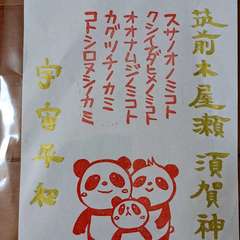 筑前木屋瀬 須賀神
スサノオノミコト
クシイナダヒメノミコト
オオナムジノミコト
カグツチノカミ
コトシロヌシノカミ
宇宙平和